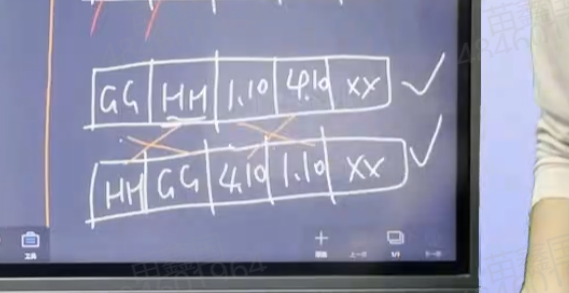 GG HH 1.10 4.10 XX
HH GG 4.10 1.10 XX
1/1